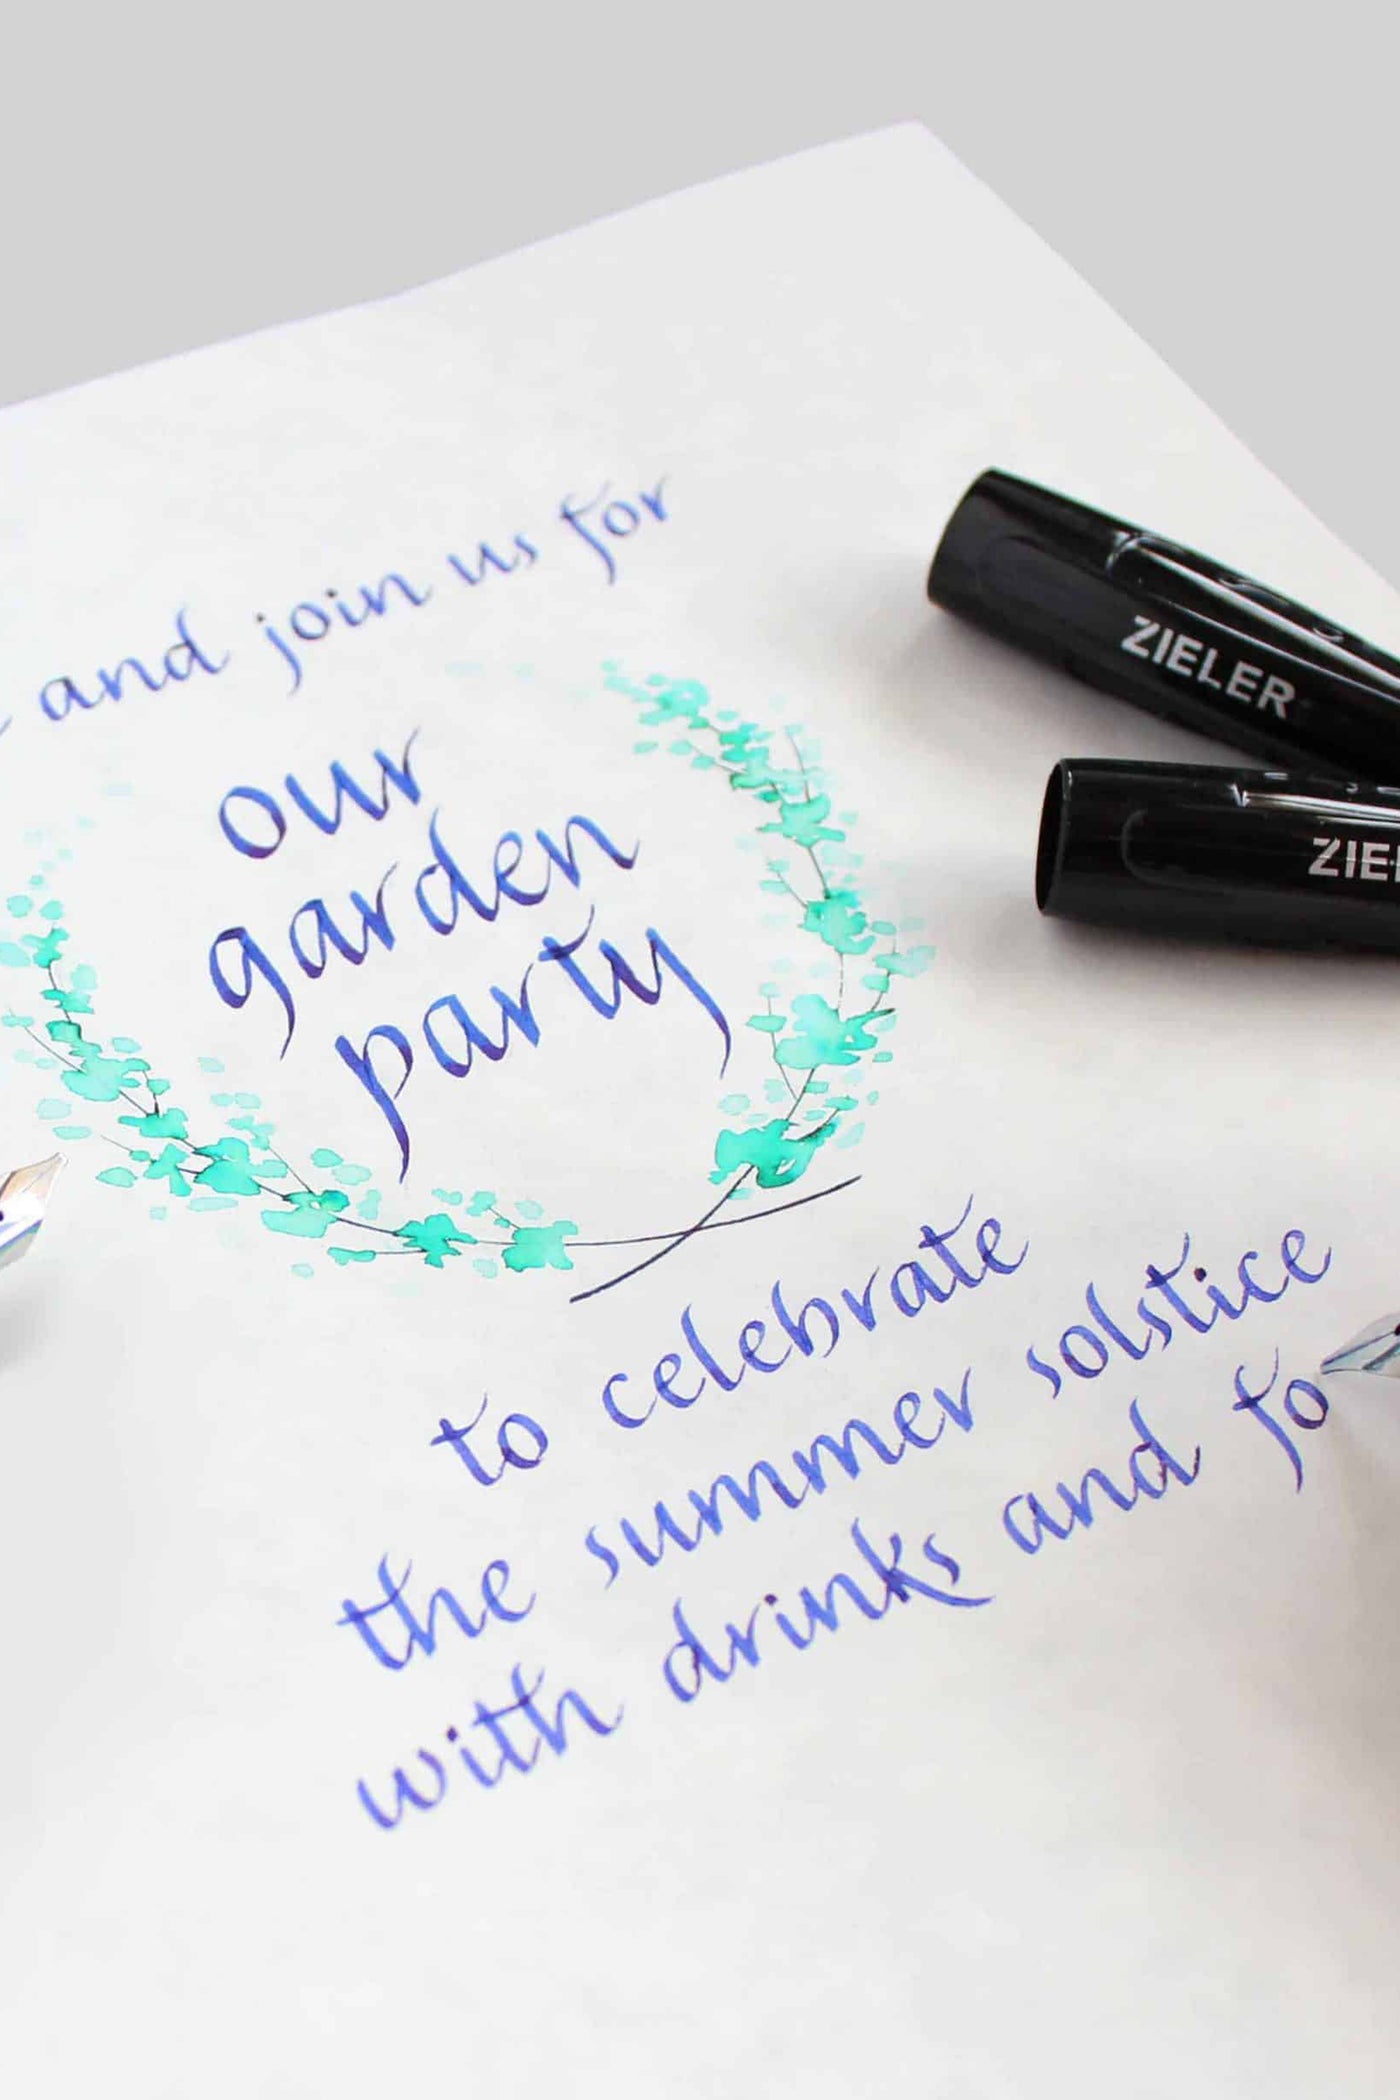 and join us for
our
garden
party
to celebrate
the summer solstice
with drinks and fo
ZIELER
ZIE